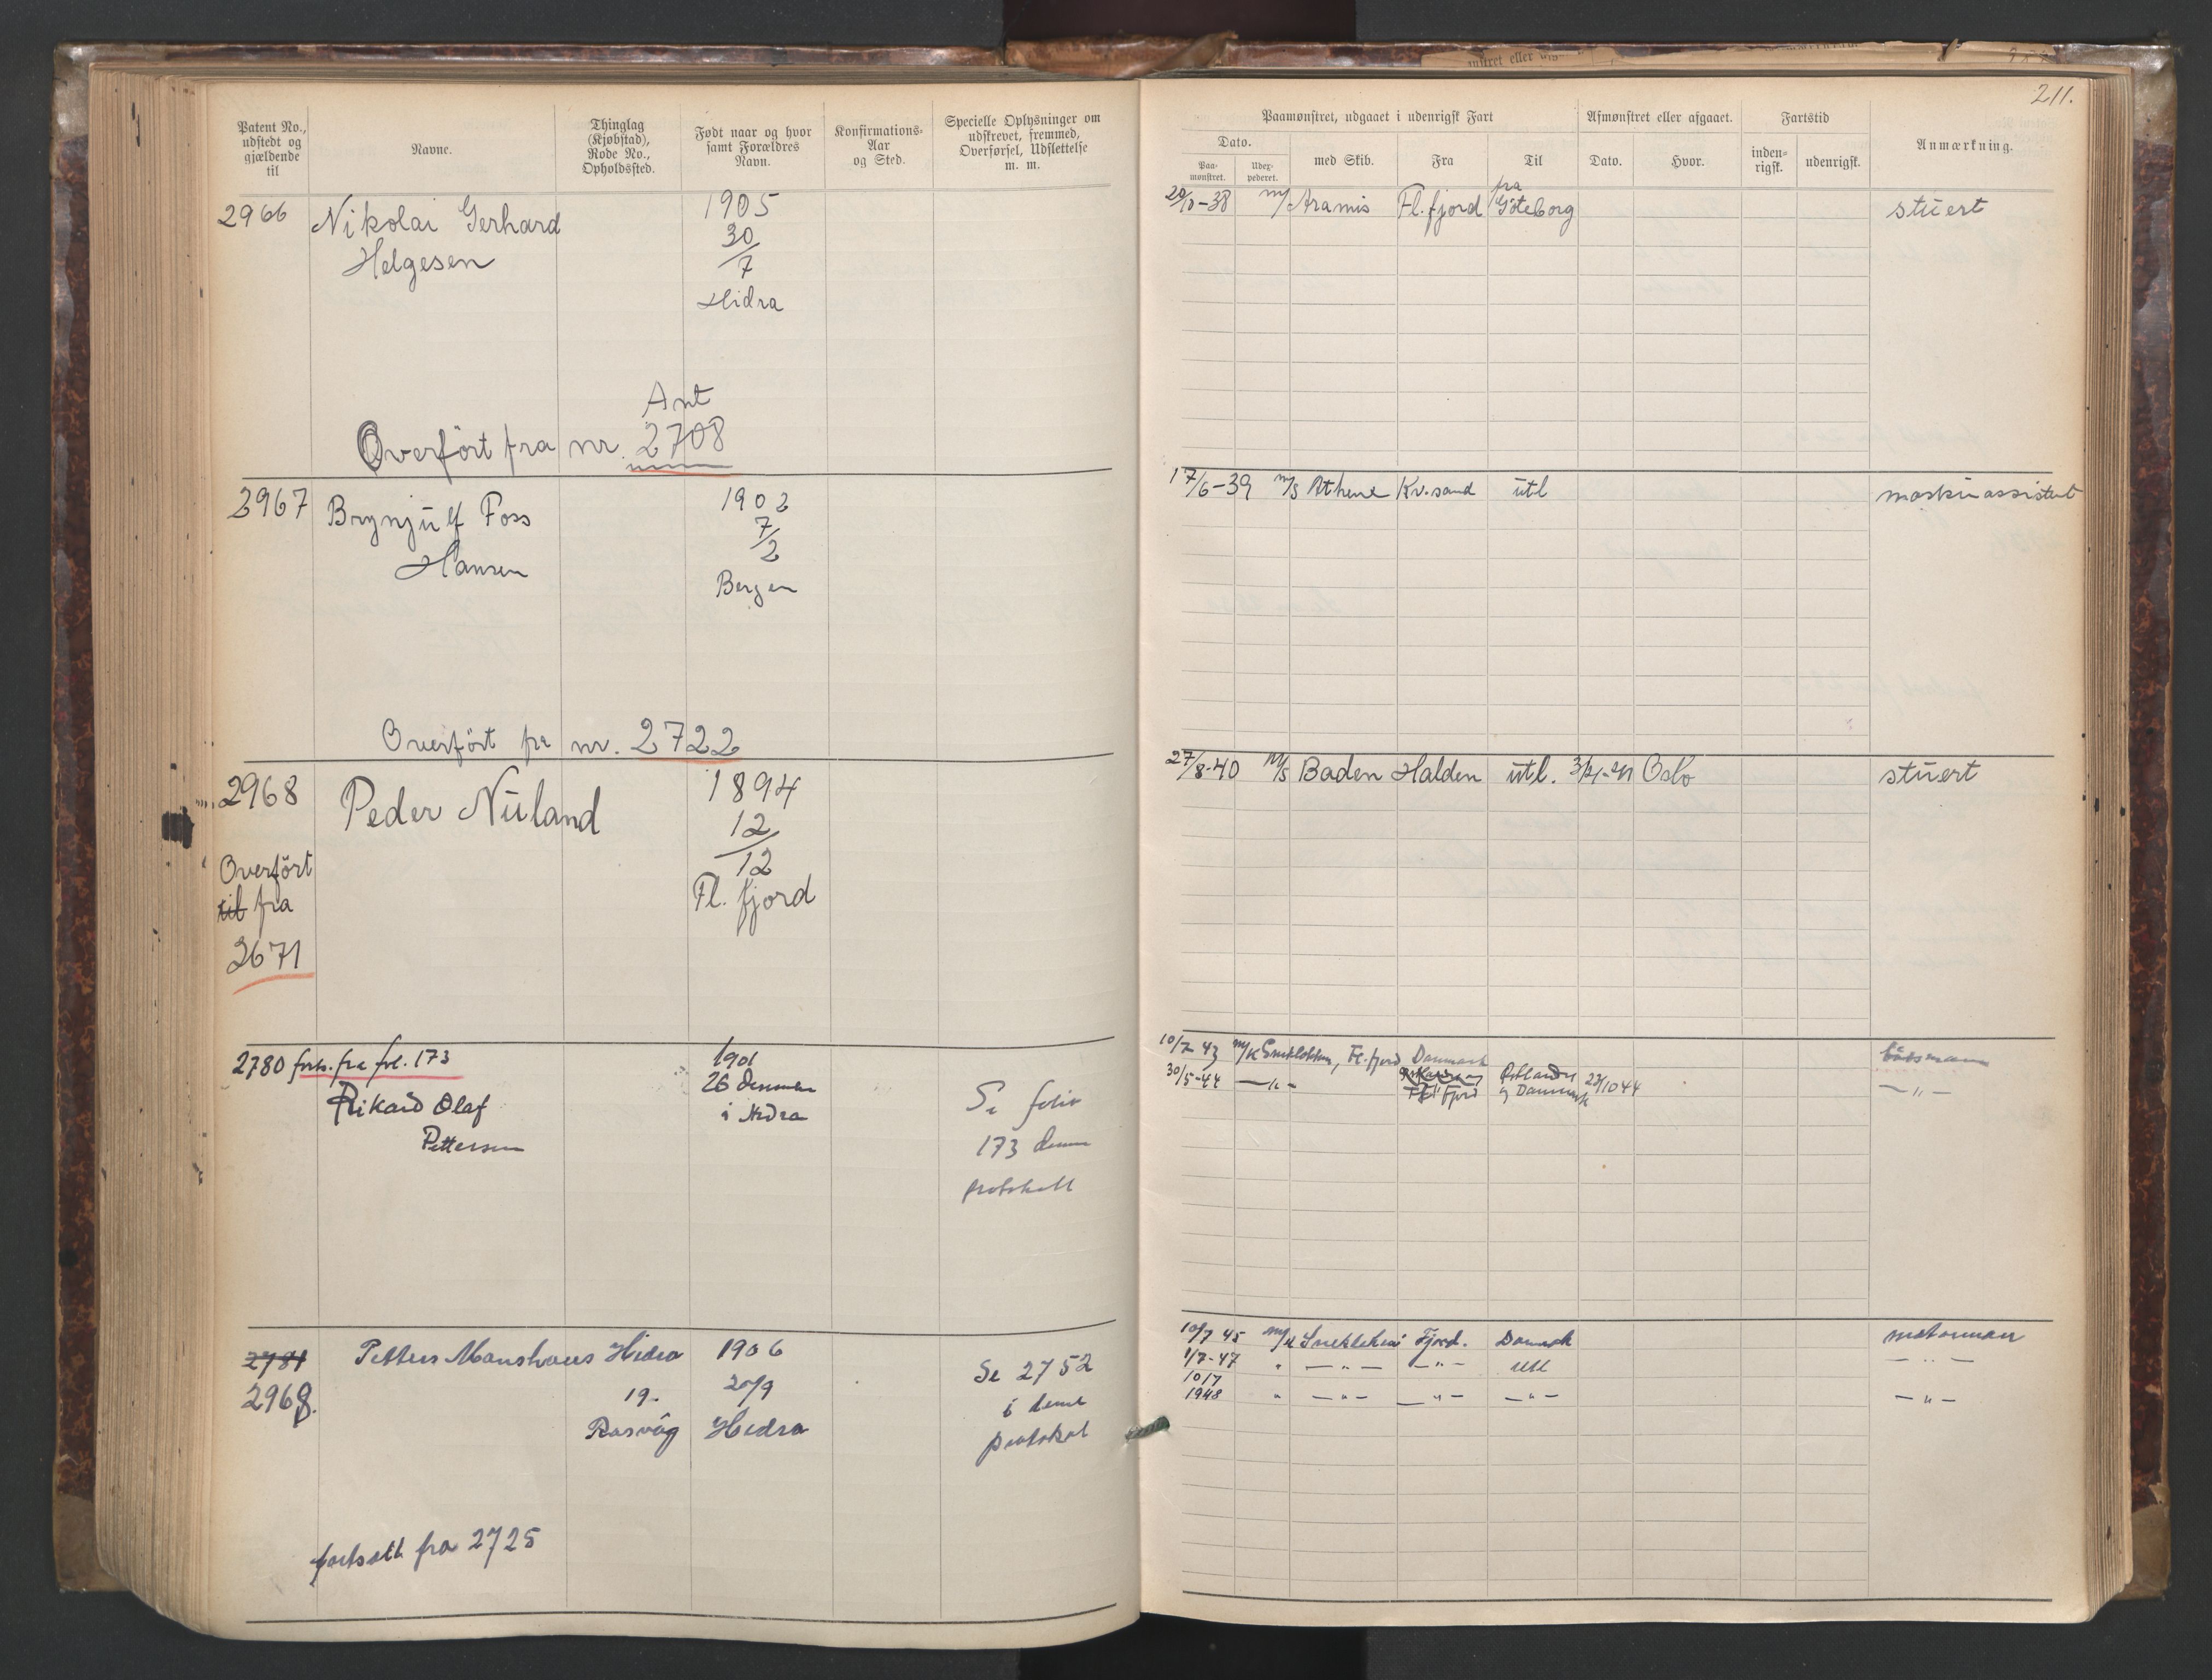 211.
Patent No., udstedt og gjældende til
Navne.
Thinglag (Kjøbstad), Rode No., Opholdssted.
Født naar og hvor samt Forældres Navn.
Konfirmations-Aar og Sted.
Specielle Oplysninger om udskrevet, fremmed, Overførsel, Udslettelse m. m.
Paamønstret, udgaaet i udenrigsk Fart
Dato.
Paa-mønstret.
Udex-pederet.
med Skib.
Fra
Til
Afmønstret eller afgaaet.
Dato.
Hvor.
Fartstid
inden-rigsk.
udenrigsk.
Anmærkning.
2966 Nikolai Gerhard 1905
Helgesen 30/7
Hidra
Ant
Overført fra nr. 2708
20/10-38 m/ Aramis Fl.fjord fra Göteborg stuert
2967 Brynjulf Foss 1902
Hansen 7/2
Bergen
Overført fra nr. 2722
17/6-39 m/s Athene Kv.sand utl maskinassistent
2968 Peder Nuland 1894
12/12
Fl. fjord
Overført
til fra
2671
27/8-40 m/s Baden Halden utl. Oslo stuert
2780 forts. fra fol. 173 1901
Rikard Olaf 26 desember
Pettersen i Hidra
Se folio
173 denne
protokoll
10/7 43 m/k Fl.fjord Danmark båtsmann
30/5-44 — " — Fjord og Danmark 23/10 44 — " —
2781 Petter Manshaus Hidra 1906
2968. 19. 20/9
Rasvåg Hidra
Se 2752
i denne
protokol
fortsatt fra 2725
10/7 45 m/k Fjord. Danmark motormann
1/7-47 " — " — — " — Utl — " —
10/7
1948 " — " — — " — — " — — " —